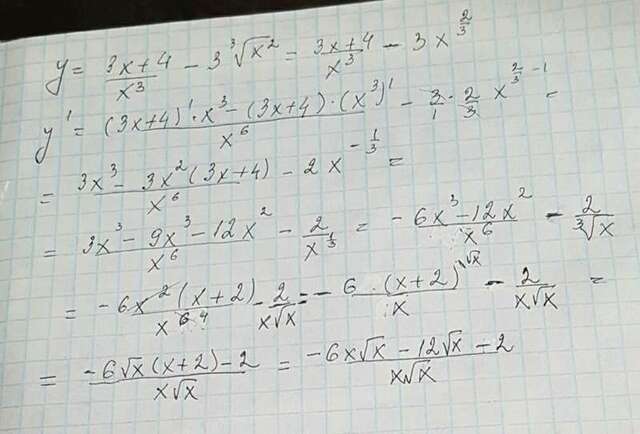 y = (3x+4)/x³ - 3∛x² = (3x+4)/x³ - 3x^(2/3)
y' = ((3x+4)'·x³ - (3x+4)·(x³)')/x⁶ - 3/1 · 2/3 x^(2/3 - 1) =
= (3x³ - 3x²(3x+4))/x⁶ - 2x^(-1/3) =
= (3x³ - 9x³ - 12x²)/x⁶ - 2/x^(1/3) = (-6x³ - 12x²)/x⁶ - 2/∛x
= (-6x²(x+2))/x⁶ ⁴ - 2/(x√x) = (-6·(x+2)^(\√x))/x - 2/(x√x) =
= (-6√x(x+2) - 2)/(x√x) = (-6x√x - 12√x - 2)/(x√x)